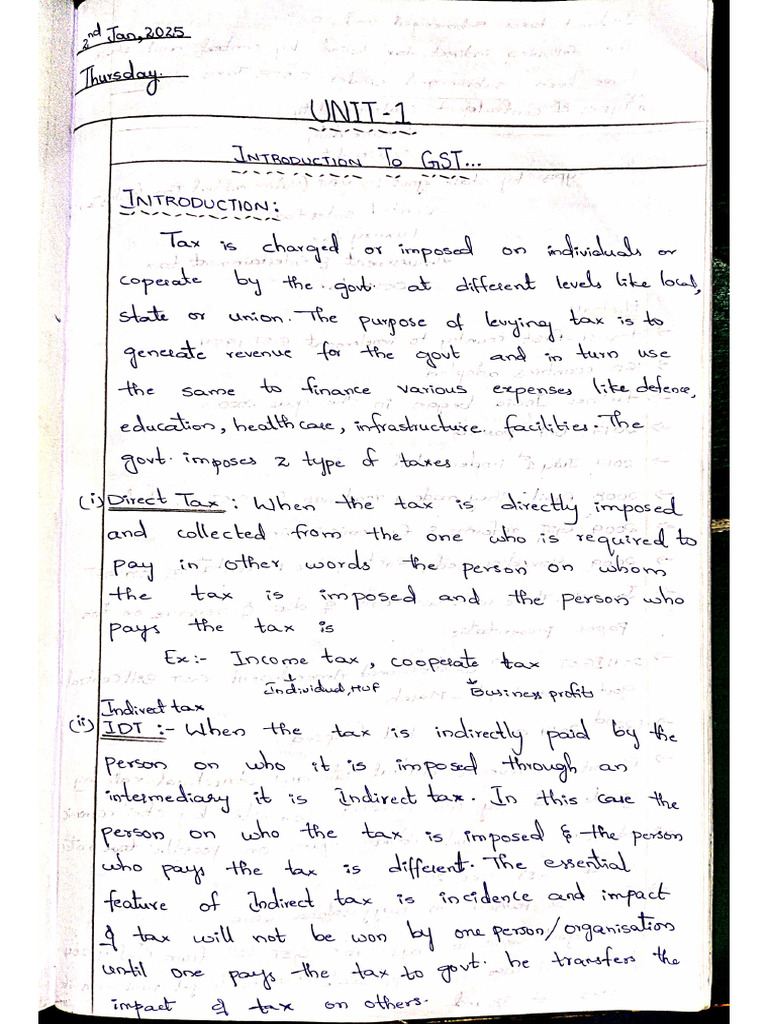 2nd Jan, 2025
Thursday.
UNIT-1
INTRODUCTION TO GST...
INTRODUCTION:
Tax is charged or imposed on individuals or
coperate by the govt. at different levels like local,
state or union. The purpose of levying tax is to
generate revenue for the govt and in turn use
the same to finance various expenses like defence,
education, healthcare, infrastructure facilities. The
govt. imposes 2 type of taxes
(i) Direct Tax : When the tax is directly imposed
and collected from the one who is required to
pay in other words the person on whom
the tax is imposed and the person who
pays the tax is
Ex:- Income tax, cooperate tax
Individual, HUF Business profits
Indirect tax
(ii) IDT :- When the tax is indirectly paid by the
person on who it is imposed through an
intermediary it is Indirect tax. In this case the
person on who the tax is imposed & the person
who pays the tax is different. The essential
feature of Indirect tax is incidence and impact
of tax will not be won by one person/organisation
until one pays the tax to govt. he transfers the
impact of tax on others.